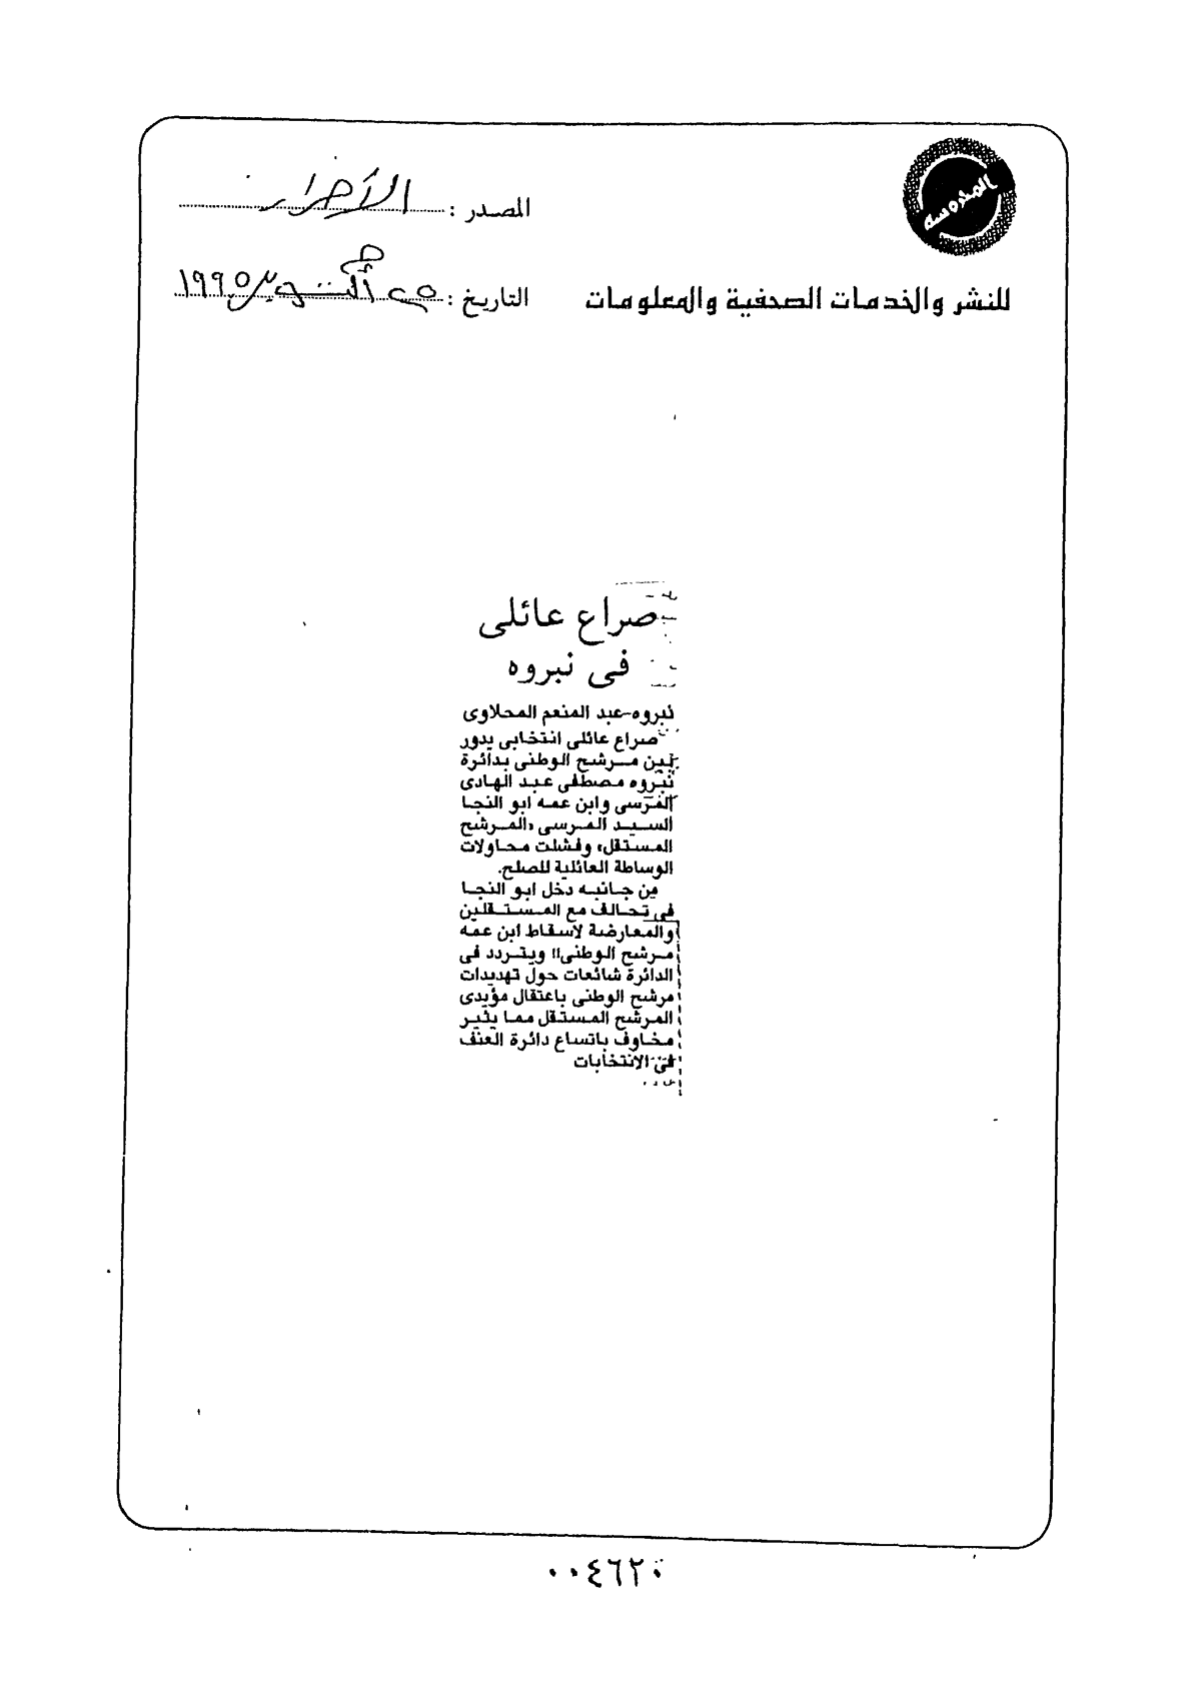 المحروسة
المصدر : الأحرار
للنشر والخدمات الصحفية والمعلومات
التاريخ : ٢٥ أكتوبر ١٩٩٥
صراع عائلى
فى نبروه
نبروه-عبد المنعم المحلاوى
صراع عائلى انتخابى يدور
بين مرشح الوطنى بدائرة
نبروه مصطفى عبد الهادى
المرسى وابن عمه ابو النجا
السيد المرسى «المرشح
المستقل» وفشلت محاولات
الوساطة العائلية للصلح.
من جانبه دخل ابو النجا
فى تحالف مع المستقلين
والمعارضة لاسقاط ابن عمه
مرشح الوطنى!! ويتردد فى
الدائرة شائعات حول تهديدات
مرشح الوطنى باعتقال مؤيدى
المرشح المستقل مما يثير
مخاوف باتساع دائرة العنف
فى الانتخابات
٠٠٤٦٢٠